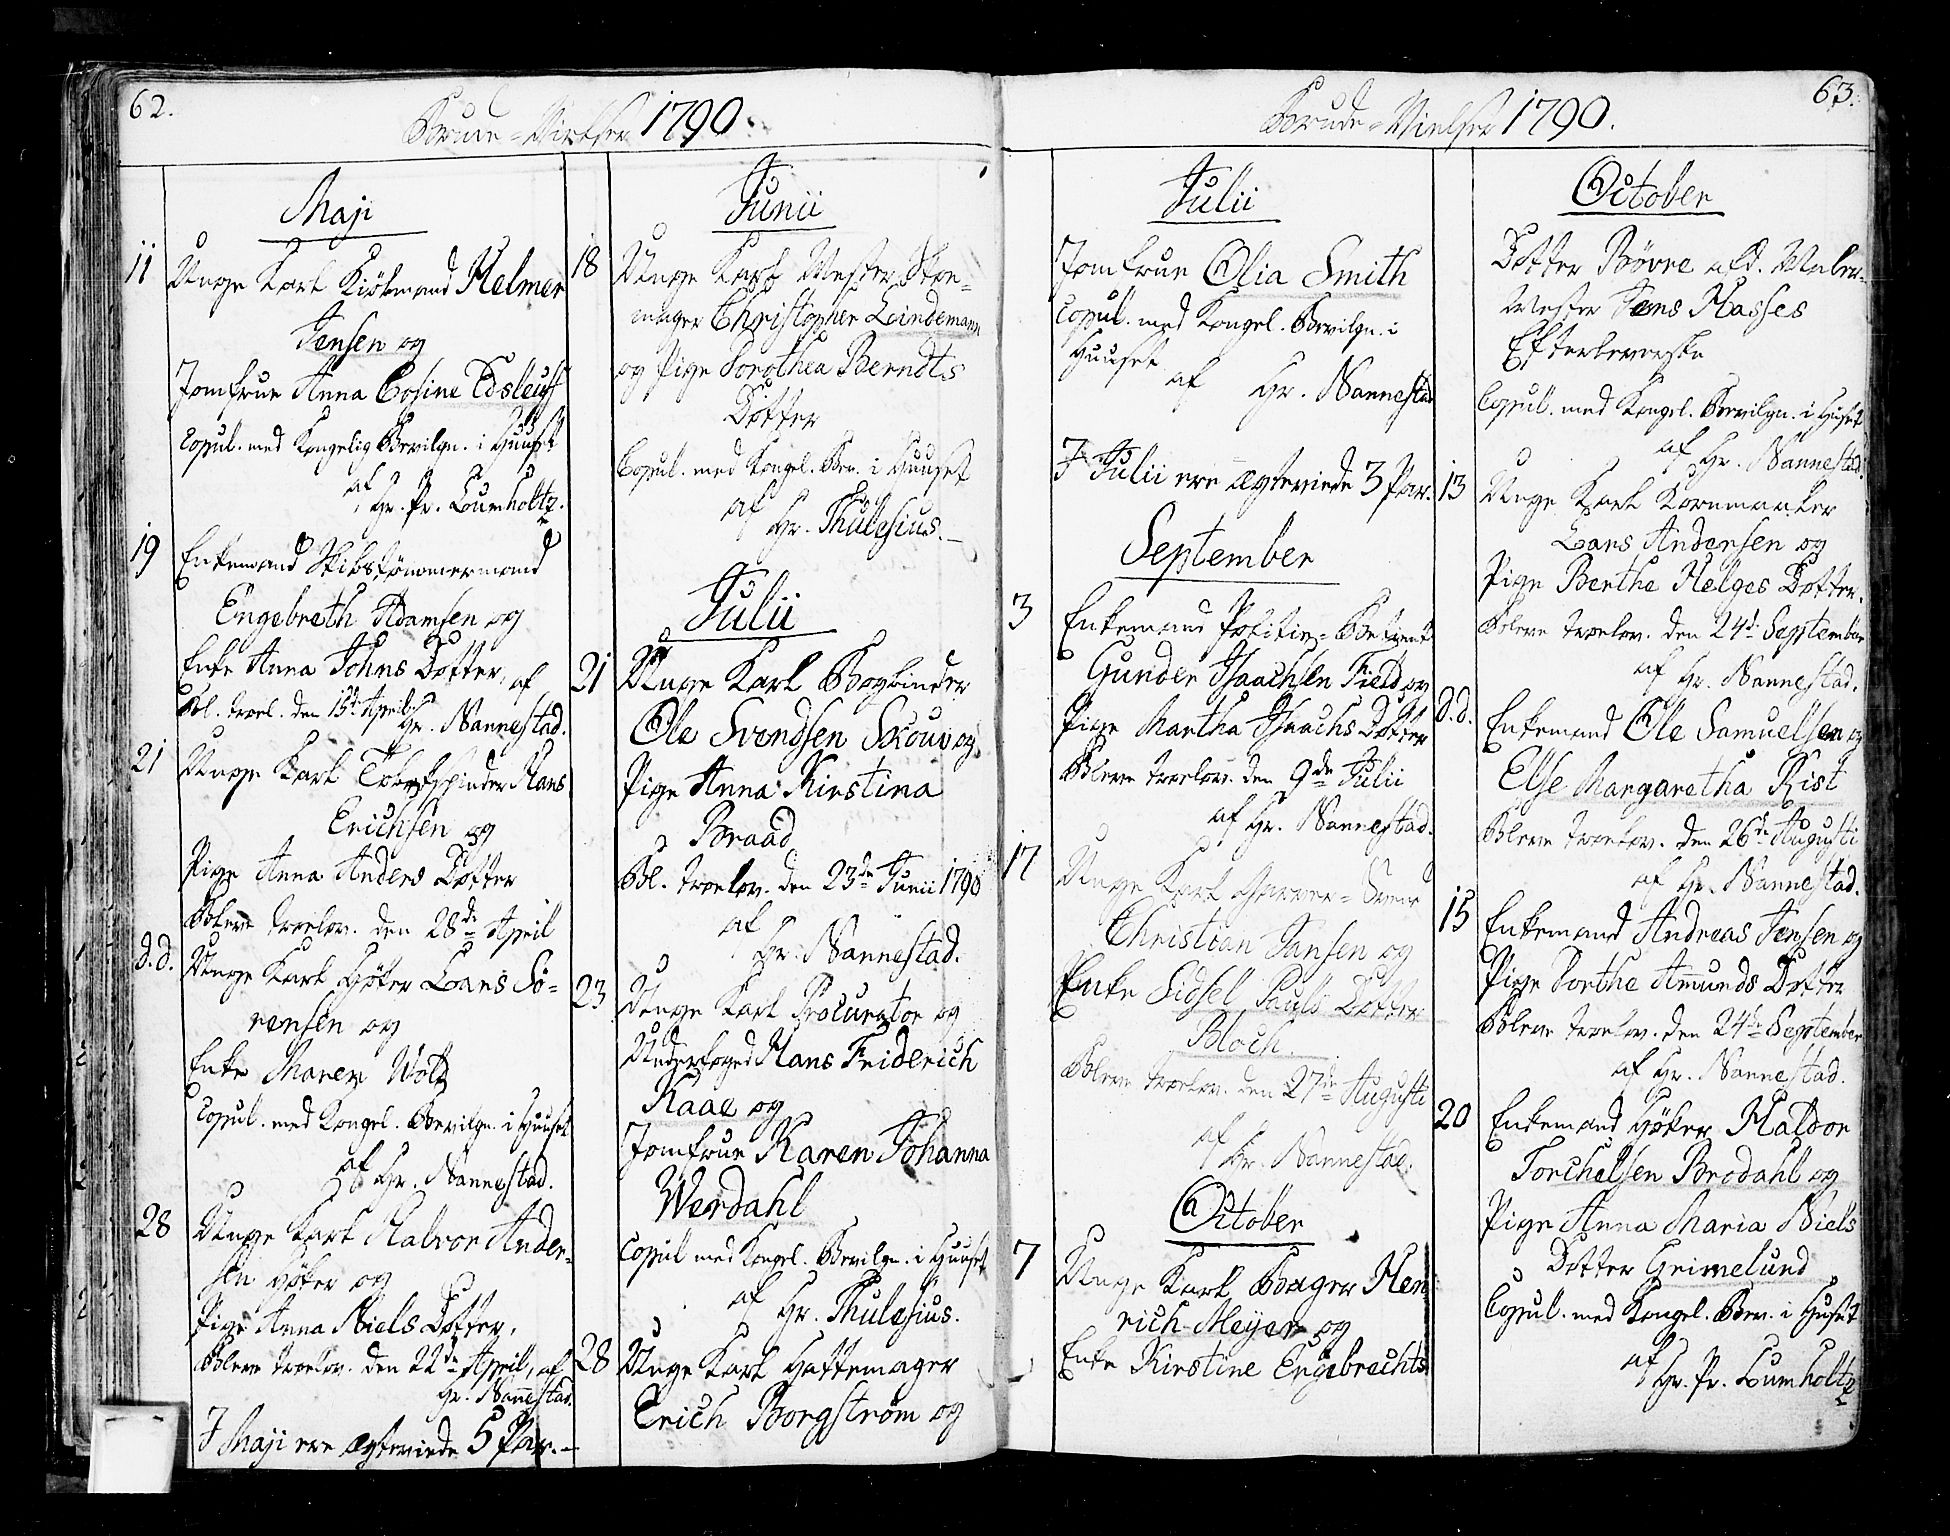 62.
Brude-Vielser 1790.
Maji
11 Unge Karl Kiöbmand Helmer
Jensen og
Jomfrue Anna Cosine
Copul. med Kongelig Bevilgn. i Huuset
af
Hr. Pr. Lumholtz.
19 Enkemand Skibstömmermand
Engebreth Adamsen og
Enke Anna Johns Dotter, af
Bl. troel. den 15de April Hr. Nannestad.
21 Unge Karl Tobakspinder Hans
Erichsen og
Pige Anna Anders Dotter
Bleve troelov. den 28de April
d.d. Unge Karl Höker Lars Sö-
rensen og
Enke Maren Wold
Copul. med Kongel. Bevilgn. i Huuset
af Hr. Nannestad.
28 Unge Karl Halvor Ander-
sen Höker og
Pige Anna Niels Dotter.
Bleve troelov. den 22de April, af
Hr. Nannestad.
I Maji ere Ægteviede 5 Par.
Junii
18 Unge Karl Mester Skoe-
mager Christopher Lindemann
og Pige Dorothea Berndts
Dotter
Copul. med Kongel. Bev. i Huuset
af
Hr. Thulesius.
Julii
21 Unge Karl Bogbinder
Ole Svendsen Skouv og
Pige Anna Kirstina
Braad
Bl. troelov. den 23de Junii 1790
af
Hr. Nannestad.
23 Unge Karl Procurator og
Underfoged Hans Friderich
Kaae og
Jomfrue Karen Johanna
Werdahl
Copul med Kongel. Bevilgn. i Huuset
af
Hr. Thulesius.
28 Unge Karl Hattemager
Erich Borgström og
63.
Brude-Vielser 1790.
Julii
Jomfrue Olia Smith
Copul. med Kongel. Bevilgn. i
Huuset
af Hr. Nannestad
I Julii ere Ægteviede 3 Par.
September
3 Enkemand Politie-Betient
Gunder Isaachsen Field og
Pige Martha Isaachs Dotter
Bleve troelov. den 9de Julii
af Hr. Nannestad.
17 Unge Karl Garver-Svend
Christian Jansen og
Enke Sidsel Pauls Dotter
Bloch.
Bleve troelov. den 27de Augusti
af
Hr. Nannestad.
October
7 Unge Karl Bager Hen
rich Meyer og
Enke Kirstine Engebrechts
October
Dotter Bövre afd. Maler-
Mester Jens Hasses
Efterleverske
Copul. med Kongel. Bevilgn. i Huset
af Hr. Nannestad.
13 Unge Karl Kornmaaler
Lars Andersen og
Pige Berthe Helges Dotter.
Bleve troelov. den 24de September
af Hr. Nannestad.
d.d. Enkemand Ole Samuelsen og
Else Margaretha Rist
Bleve troelov. den 26de Augusti
af Hr. Nannestad.
15 Enkemand Andreas Jensen og
Pige Dorthe Amunds Dotter
Bleve troelov. den 24de September
af Hr. Nannestad.
20 Enkemand Höker Halvor
Torchelsen Brodahl og
Pige Anna Maria Niels
Dotter Grimelund
Copul. med Kongel. Bev. i Huset
af
Hr. Pr. Lumholtz